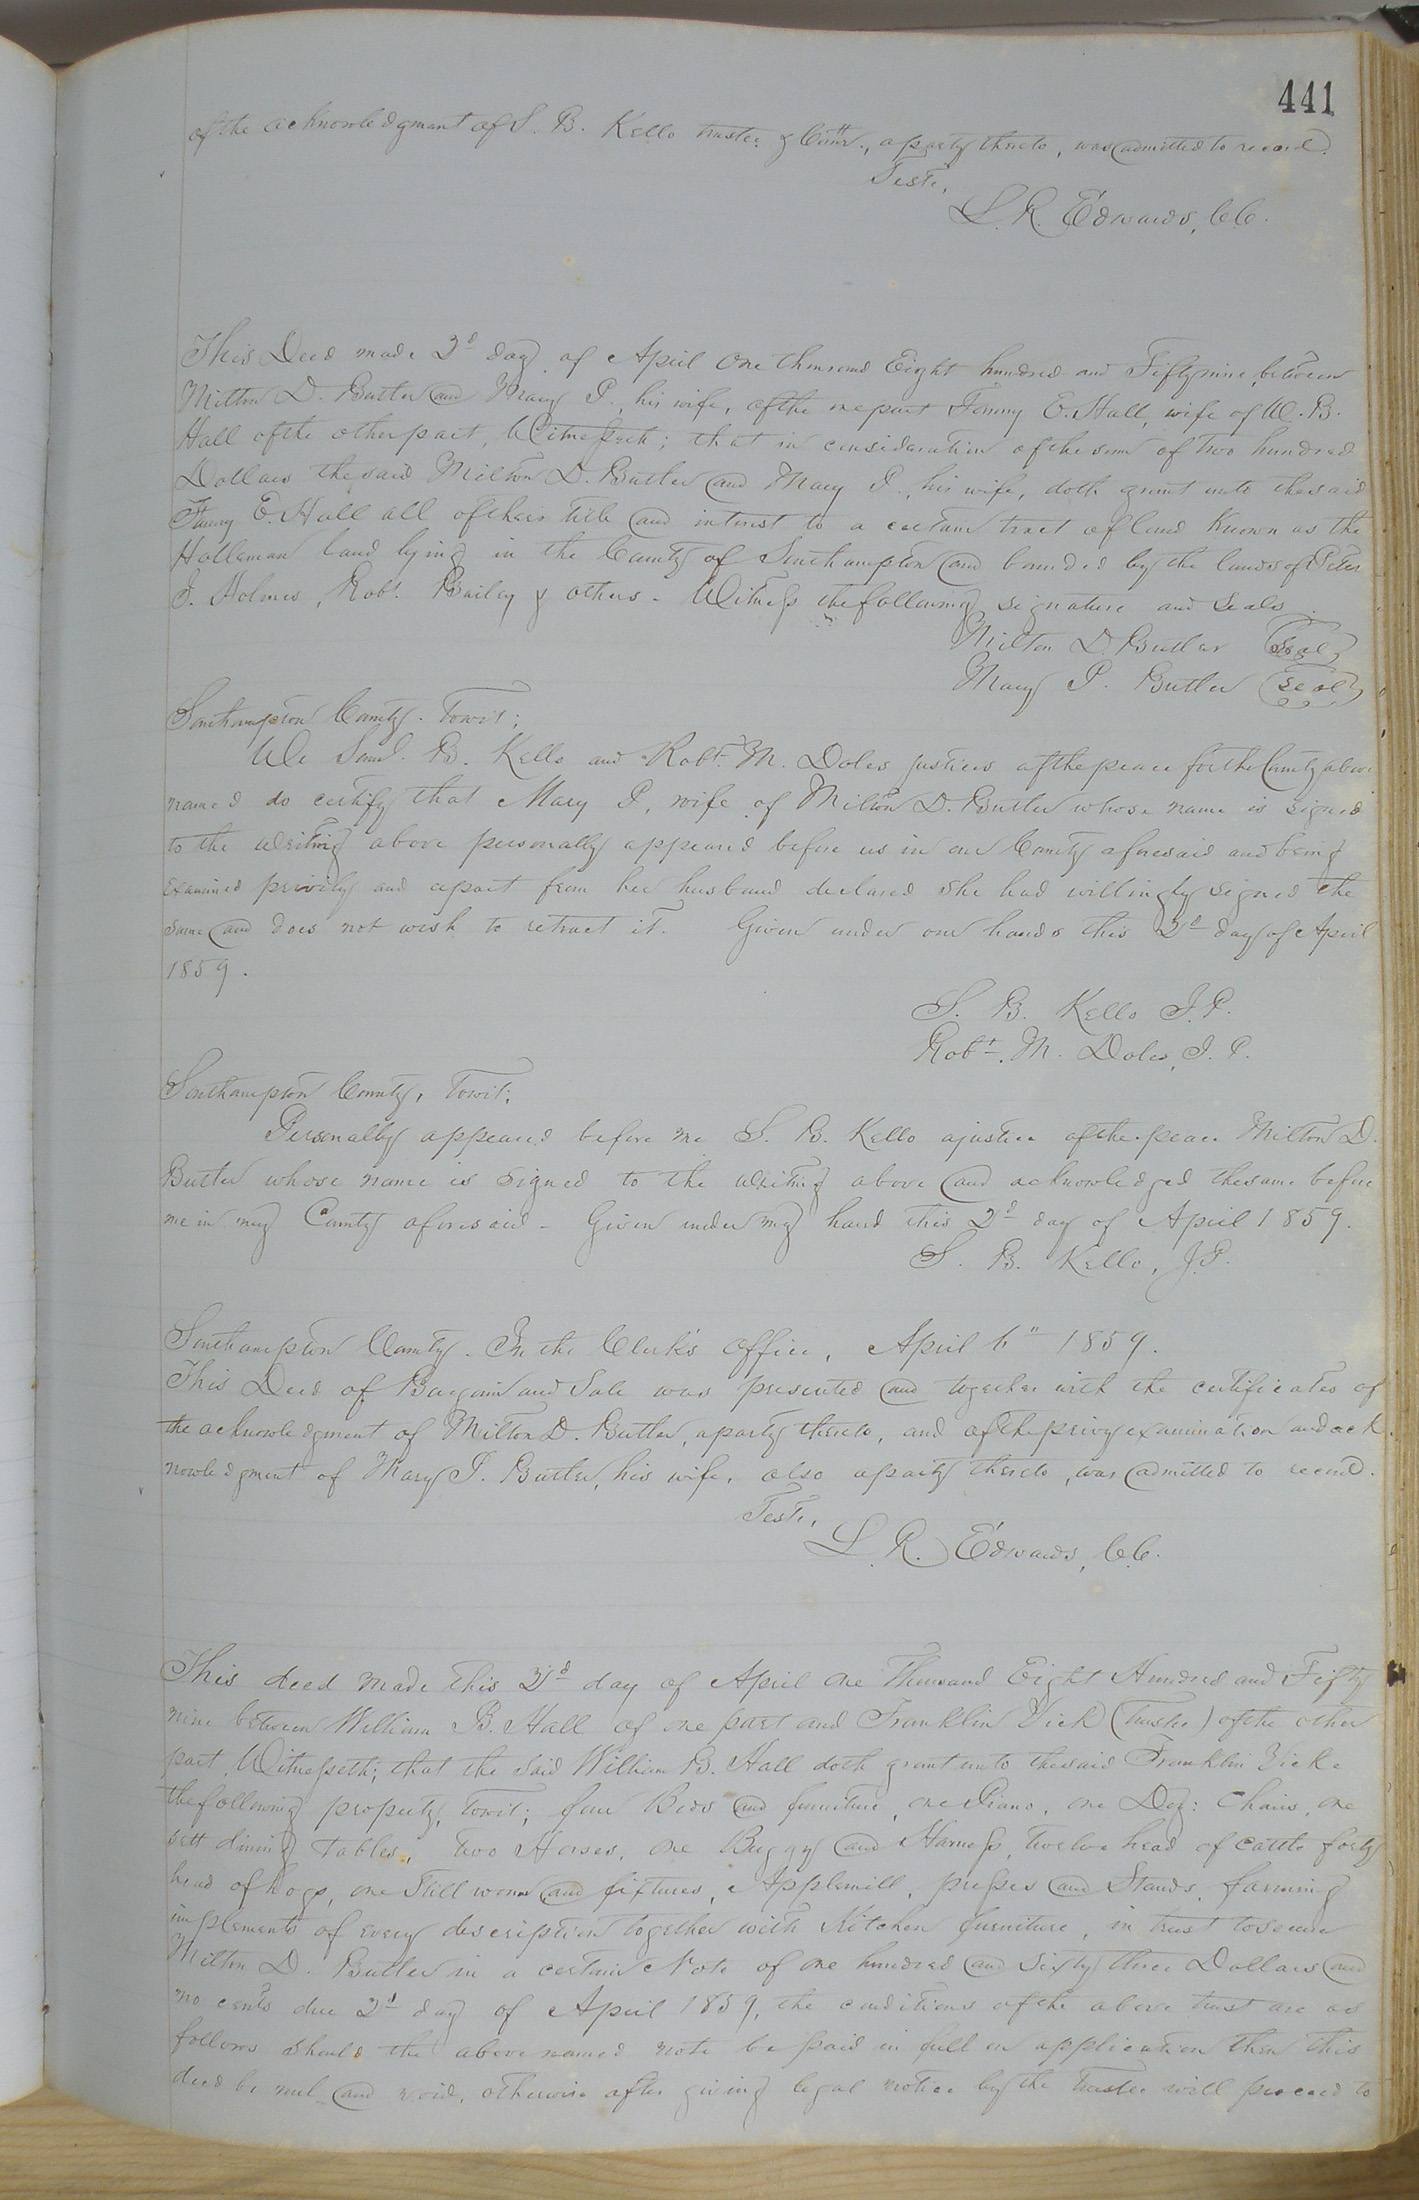 441
of the acknowledgment of S. B. Kello trustee & Comr., a party thereto, was admitted to record.
Teste,
L. R. Edwards, C.C.
This Deed made 2d day of April One thousand Eight hundred and Fifty nine, between
Milton D. Butler and Mary P., his wife, of the one part Fanny E. Hall, wife of W. B.
Hall of the other part, Witnesseth; that in consideration of the sum of two hundred
Dollars the said Milton D. Butler and Mary P., his wife, doth grant unto the said
Fanny E. Hall all of their title and interest to a certain tract of land Known as the
Holleman land lying in the County of Southampton and bounded by the lands of Peter
J. Holmes, Robt. Bailey & others - Witness the following signature and seals.
Milton D. Butler (Seal)
Mary P. Butler (Seal)
Southampton County. Towit;
We Saml. B. Kello and Robt. M. Doles justices of the peace for the County above
named do certify that Mary P, wife of Milton D. Butler whose name is signed
to the writing above personally appeared before us in our County aforesaid and being
Examined privily and apart from her husband declared she had willingly signed the
same and does not wish to retract it. Given under our hands this 2d day of April
1859.
S. B. Kello J.P.
Robt. M. Doles, J.P.
Southampton County, Towit;
Personally appeared before me S. B. Kello a justice of the peace Milton D.
Butler whose name is signed to the writing above and acknowledged the same before
me in my County aforesaid - Given under my hand this 2d day of April 1859.
S. B. Kello, J.P.
Southampton County. In the Clerk's office, April 6" 1859.
This Deed of Bargain and Sale was presented and together with the certificates of
the acknowledgment of Milton D. Butler, a party thereto, and of the privy examination and ack
nowledgment of Mary P. Butler, his wife, also a party thereto, was admitted to record.
Teste,
L. R. Edwards, C.C.
This deed made this 2d day of April One Thousand Eight Hundred and Fifty
nine between William B. Hall of one part and Franklin Vick (Trustee) of the other
part, Witnesseth; that the said William B. Hall doth grant unto the said Franklin Vick
the following property, Towit; four Beds and furniture, one Piano, one Doz: Chairs, one
sett dining Tables, two Horses, one Buggy and Harness, twelve head of Cattle forty
head of hogs, one Still worm and fixtures, Applemill, presses and Stands, farming
implements of every description together with Kitchen furniture, in trust to secure
Milton D. Butler in a certain Note of one hundred and sixty three Dollars and
no cents due 2d day of April 1859, the conditions of the above trust are as
follows should the above named note be paid in full on application then this
deed be nul and void, otherwise after giving legal notice by the Trustee will proceed to